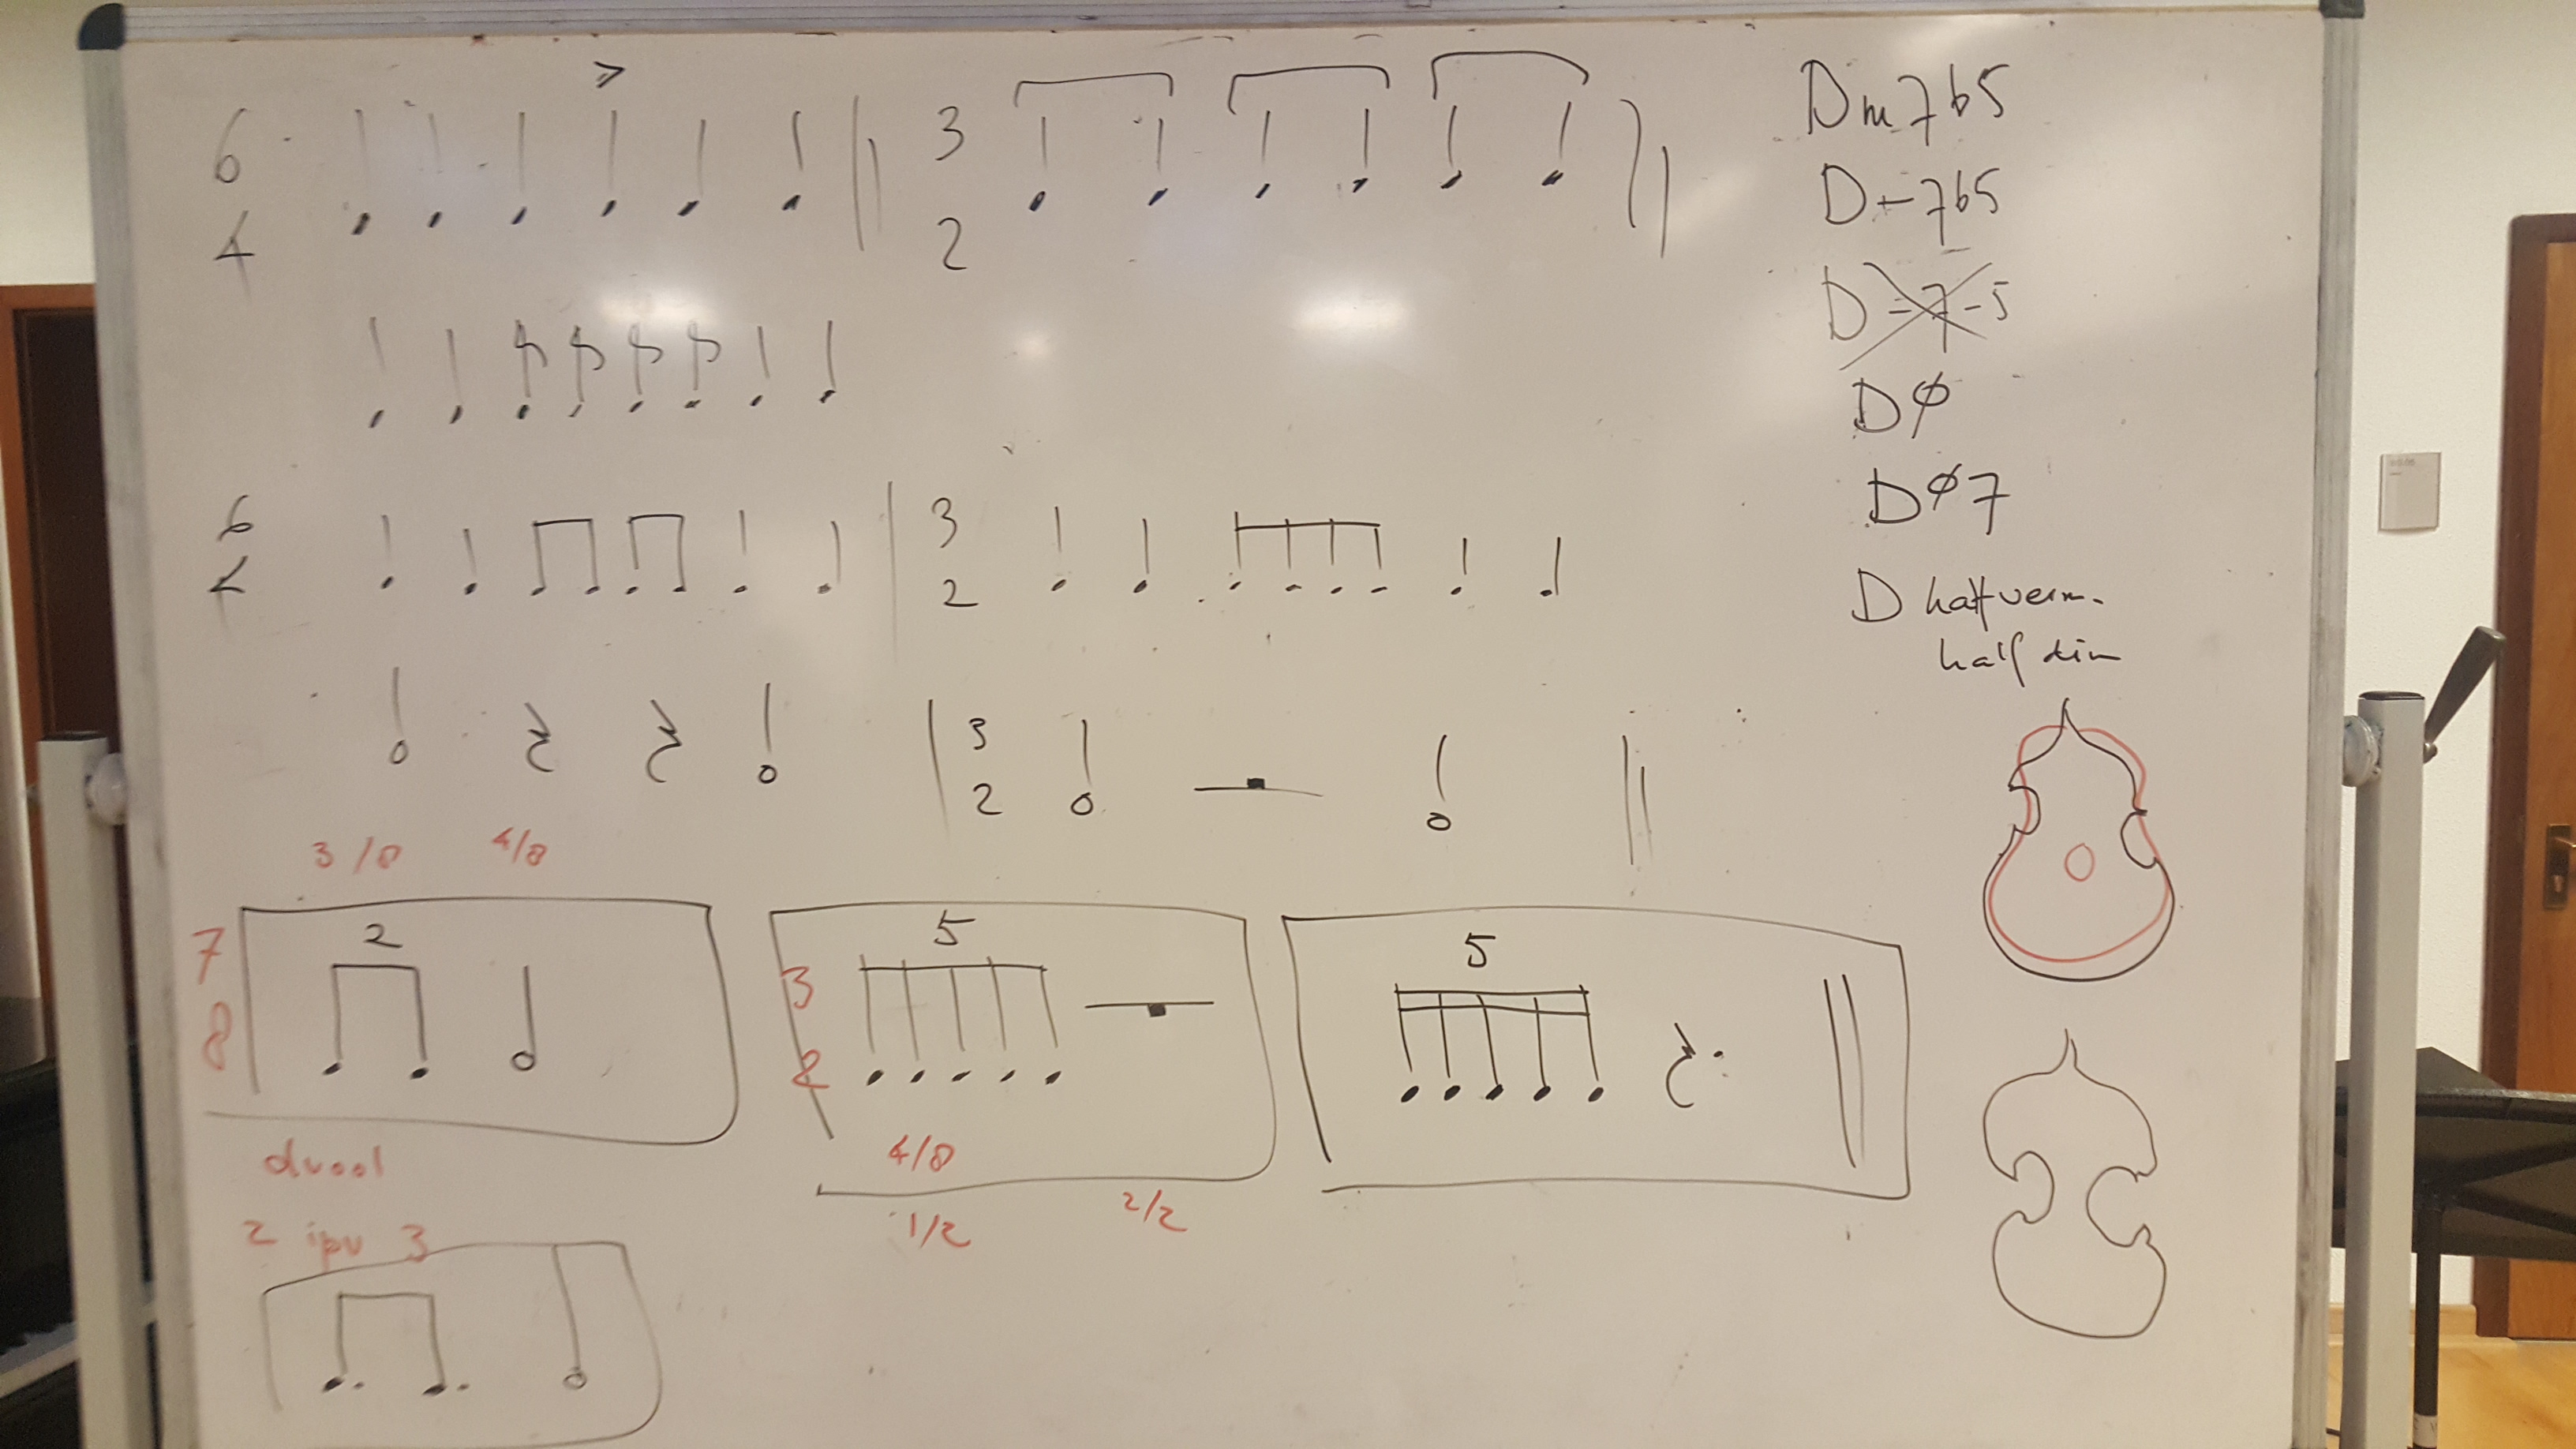 6
4
3
2
Dm7b5
D-7b5
D-7-5
DØ
DØ7
D halfverm.
half dim
6
4
3
2
3
2
3/8 4/8
7
8
2
3
2
5
5
duool
4/8
1/2 2/2
2 ipv 3